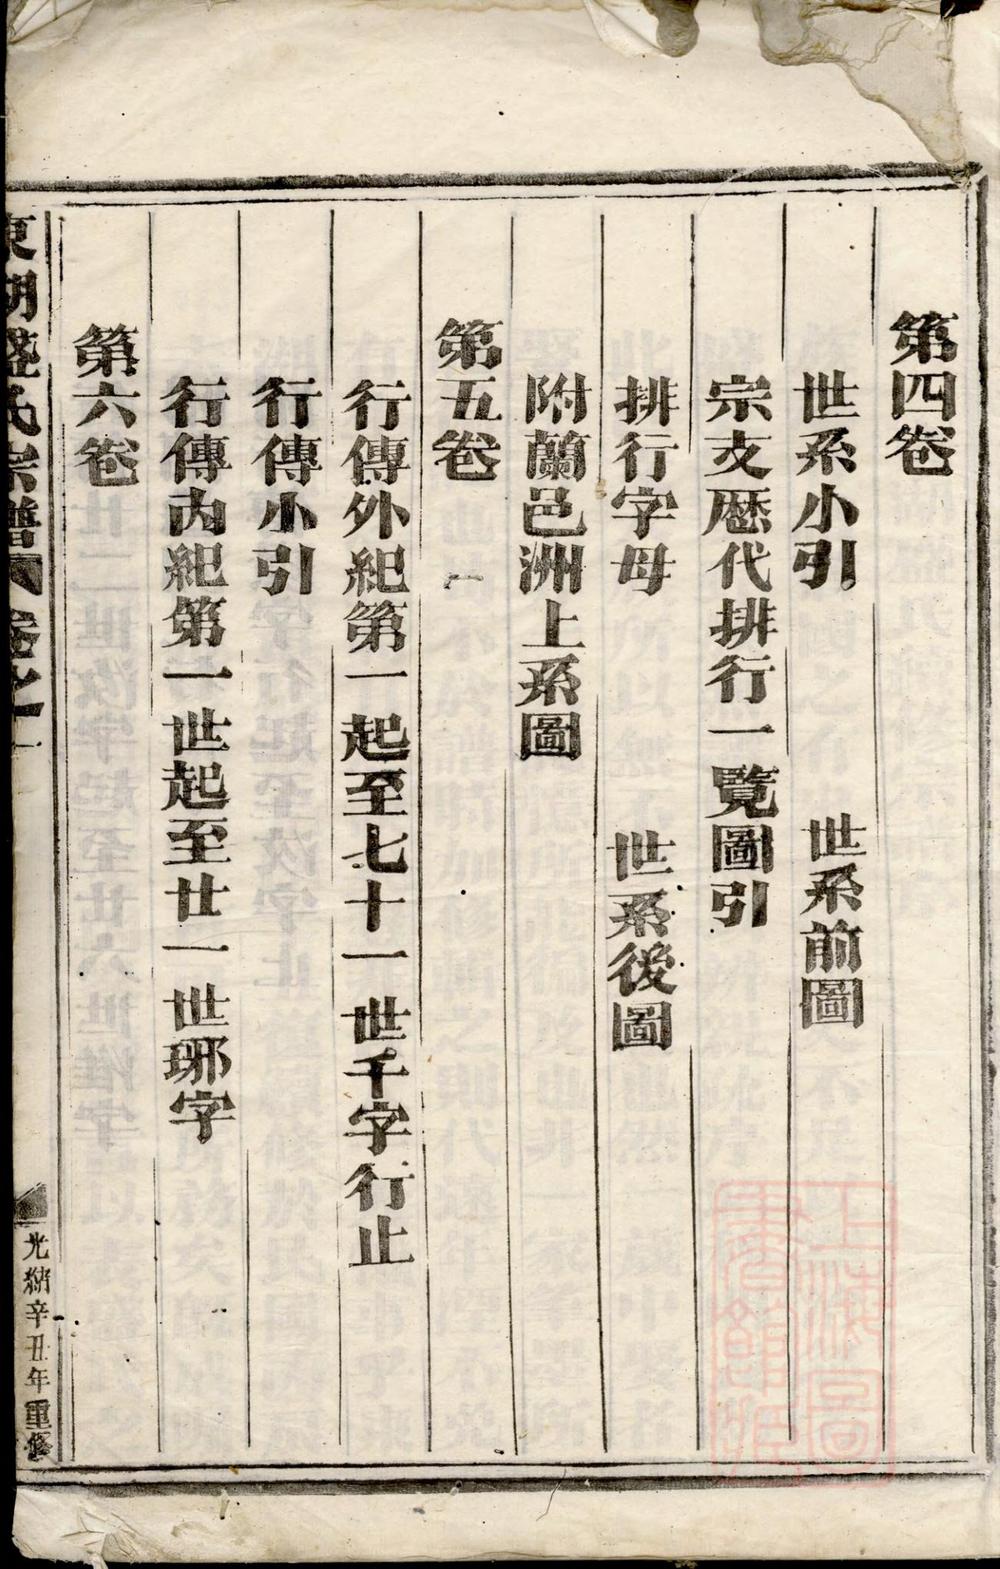 第四卷
世系小引 世系前圖
宗支歷代排行一覽圖引
排行字母 世系後圖
附蘭邑洲上系圖
第五卷
行傳外紀第一起至七十一世千字行止
行傳小引
行傳內紀第一世起至廿一世琊字
第六卷
東湖盛氏宗譜 卷之一
光緒辛丑年重修
上海圖書館藏